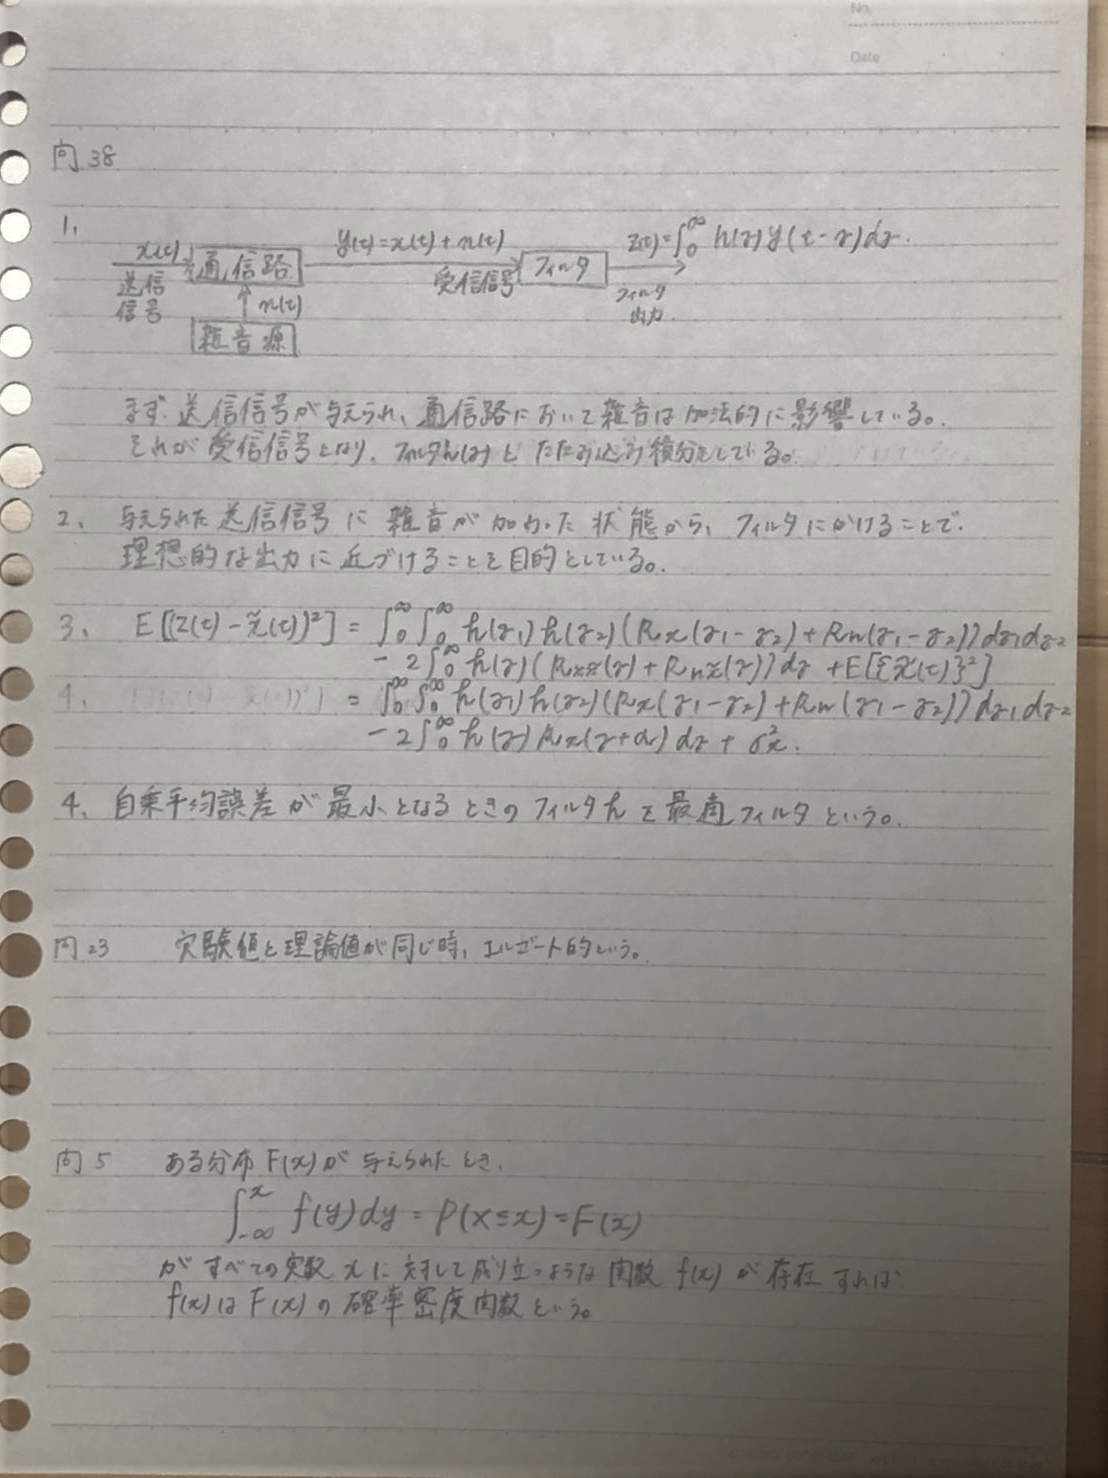 No.
Date
問38
1.
x(t) 通信路 y(t)=x(t)+n(t) フィルタ z(t)=∫₀^∞ h(τ)y(t-τ)dτ.
送信信号 受信信号 フィルタ出力
n(t)
雑音源
まず、送信信号が与えられ、通信路において雑音は加法的に影響している。
それが受信信号となり、フィルタh(τ)とたたみ込み積分をしている。
2. 与えられた送信信号に雑音が加わった状態から、フィルタにかけることで、
理想的な出力に近づけることを目的としている。
3. E[(z(t)-x̃(t))²] = ∫₀^∞∫₀^∞ h(τ₁)h(τ₂)(Rx(τ₁-τ₂)+Rn(τ₁-τ₂))dτ₁dτ₂
-2∫₀^∞ h(τ)(Rxx̃(τ)+Rnx̃(τ))dτ+E[{x̃(t)}²]
= ∫₀^∞∫₀^∞ h(τ₁)h(τ₂)(Rx(τ₁-τ₂)+Rn(τ₁-τ₂))dτ₁dτ₂
-2∫₀^∞ h(τ)Rx(τ+α)dτ+σ²x.
4. 自乗平均誤差が最小となるときのフィルタhを最適フィルタという。
問23 実験値と理論値が同じ時、エルゴート的という。
問5 ある分布F(x)が与えられたとき、
∫₋∞^x f(y)dy=P(X≤x)=F(x)
がすべての実数xに対して成り立つような関数f(x)が存在すれば
f(x)はF(x)の確率密度関数という。